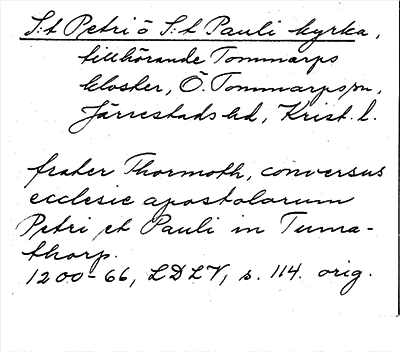 S:t Petri o S:t Pauli kyrka,
tillhörande Tommarps
kloster, Ö. Tommarps sn,
Järrestads hd, Krist. l.
frater Thormoth, conversus
ecclesie apostolorum
Petri et Pauli in Tuma-
thorp.
1200-66, LDLV, s. 114. orig.